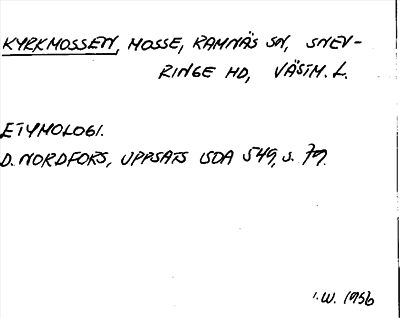 KYRKMOSSEN, MOSSE, RAMNÄS SN, SNEV-
RINGE HD, VÄSTM. L.
ETYMOLOGI.
D. NORDFORS, UPPSATS ISDA 549, s. 79.
I.W. 1956